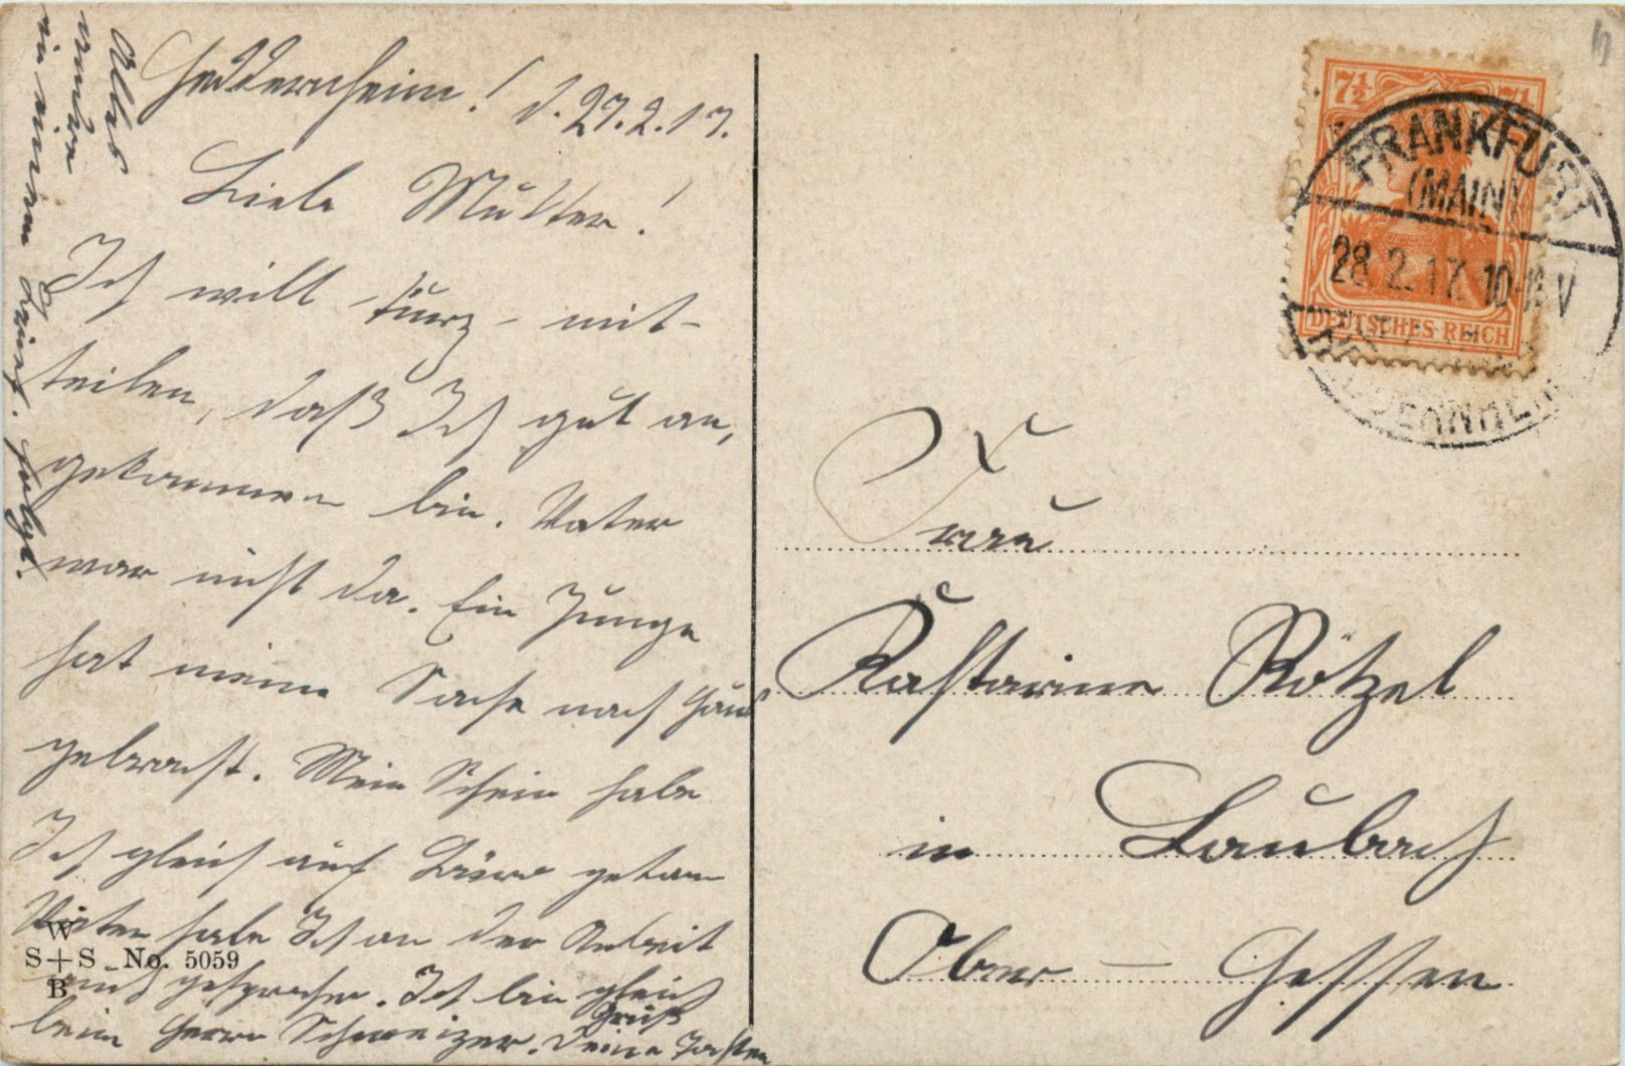 Heddernheim! d. 27.2.17.
Liebe Mutter!
Ich will kurz mit-
teilen, daß Ich gut an,
gekommen bin. Vater
war nicht da. Ein Junge
hat meine Sache nach Haus
gebracht. Mein Schein habe
Ich gleich auf Büro getan
Vater habe Ich an der Arbeit
auch gesprochen. Ich bin gleich
beim Herrn Schweizer. Gruß
Deine
Alles
andere
in einem Brief folgt.
W
S+S No. 5059
B
7½ 7½
DEUTSCHES REICH
FRANKFURT
(MAIN)
28.2.17. 10-11 V
HEDDERNHEIM
Frau
Katharine Rötzel
in Laubach
Ober-Hessen